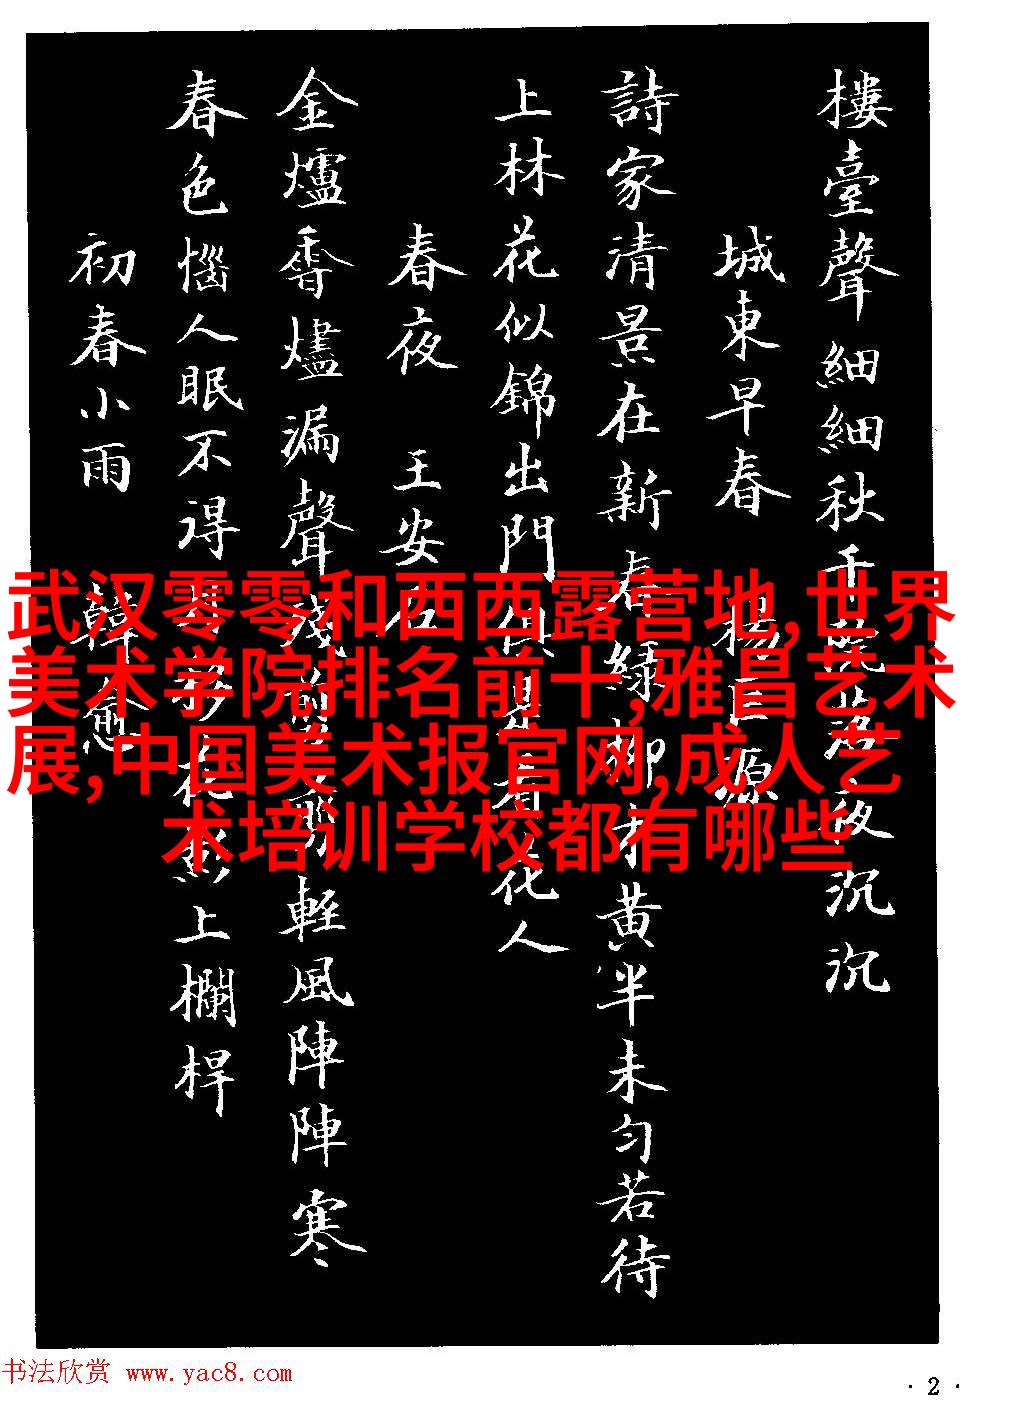 樓臺聲細細秋千院落夜沉沉
城東早春 楊巨源
詩家清景在新春綠柳才黃半未勻若待
上林花似錦出門俱是看花人
春夜 王安石
金爐香燼漏聲殘輕風陣陣寒
春色惱人眠不得月移花影上欄桿
初春小雨 韓愈
武汉零零和西西露营地,世界
美术学院排名前十,雅昌艺术
展,中国美术报官网,成人艺
术培训学校都有哪些
书法欣赏 www.yac8.com
· 2 ·